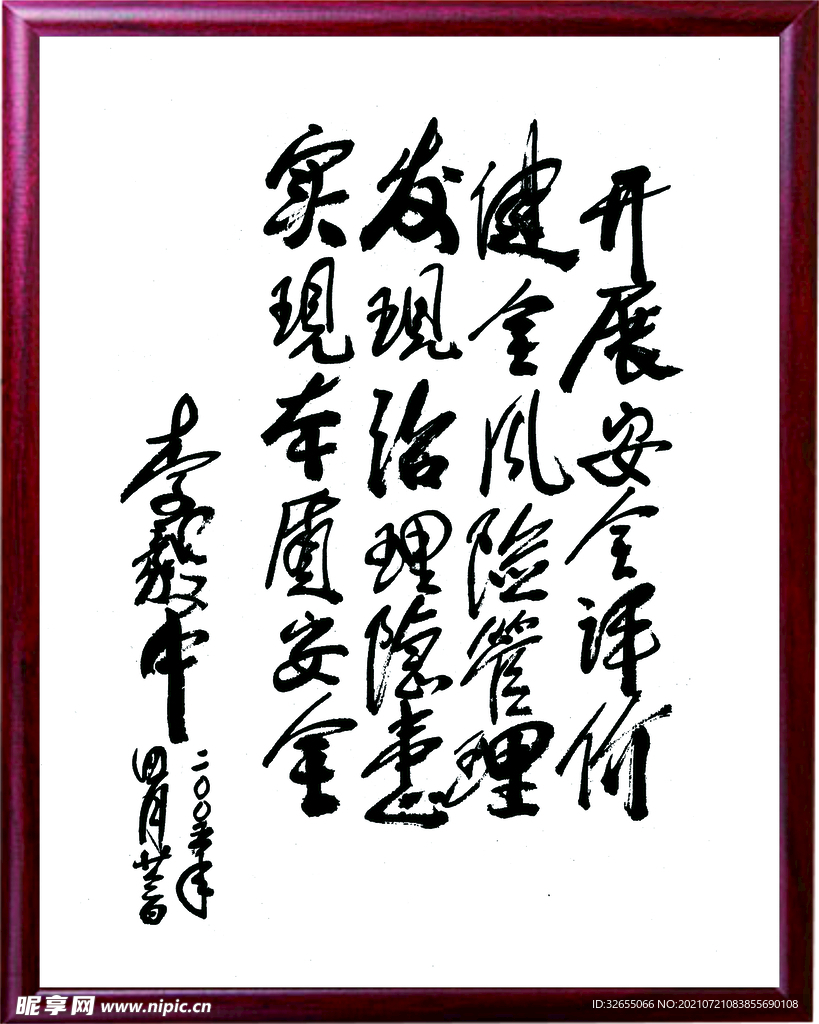 开展安全評价
健全风險管理
发現治理隐患
实現本质安全
李毅中
二〇〇六年
四月廿三日
昵享网 www.nipic.cn
ID:32655066 NO:20210721083855690108